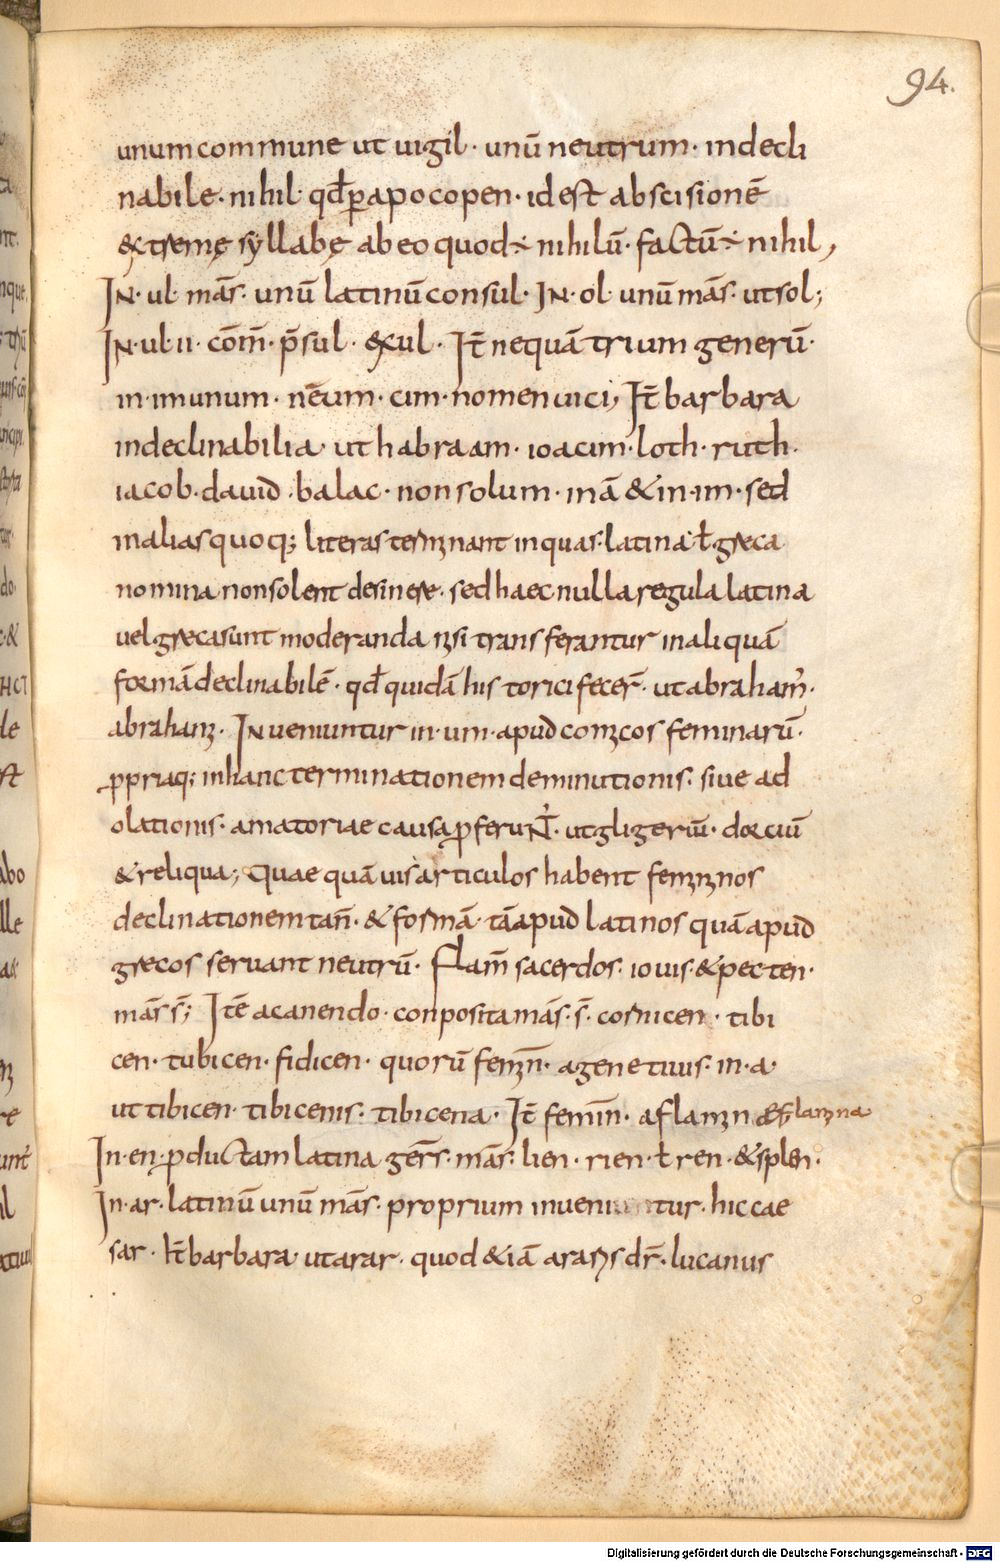 94.
unum commune ut uigil · unū neutrum · indecli
nabile · nihil · qđ ꝑ apocopen · id est abscisionē
&tremę syllabę ab eo quod ÷ nihilū · factū ÷ nihil,
IN · ul · mās · unū latinū consul · IN · ol · unū mās · ut sol;
IN · ul · ii · cōm̄ · p̄sul · exul · It̄ nequā trium generū ·
in · im unum · nēum · cim · nomen uici, It̄ barbara
indeclinabilia · ut habraam · ioacim · loth · ruth ·
iacob · dauid · balac · non solum · in ā & in · im · sed
in alias quoq; literas terminant in quas · latina · ł · greca
nomina non solent desinere · sed haec nulla regula latina
uel greca sunt moderanda nisi transferantur in aliquā
formā declinabilē · qđ quidā historici fecer̄ · ut abraham' ·
abrahami · INueniuntur in · um · apud comicos feminarū ·
ꝓpriaq; in hanc terminationem deminutionis · siue ad
olationis · amatoriae causa ꝓferuN̄t · ut gligeriū · dorciū
& reliqua; Quae quāuis articulos habent femininos
declinationem tam̄ · & formā · tā apud latinos quā apud
grecos seruant neutrū · Flam̄ sacerdos · iouis · & pecten ·
mās s̄; Itē a canendo · conposita mās · s̄ · cornicen · tibi
cen · tubicen · fidicen · quorū femin̄ · a genetiuis · in · a ·
ut tibicen · tibicenis · tibicena · It̄ femin̄ · a flamin e flamina
In · en · ꝓductam latina geñs · mās · lien · rien · ł ren · & splen ·
In · ar · latinū unū mās · proprium inueniuntur · hic cae
sar · It̄ barbara · ut arar · quod & iā araris dr̄ · lucanus
Digitalisierung gefördert durch die Deutsche Forschungsgemeinschaft - DFG